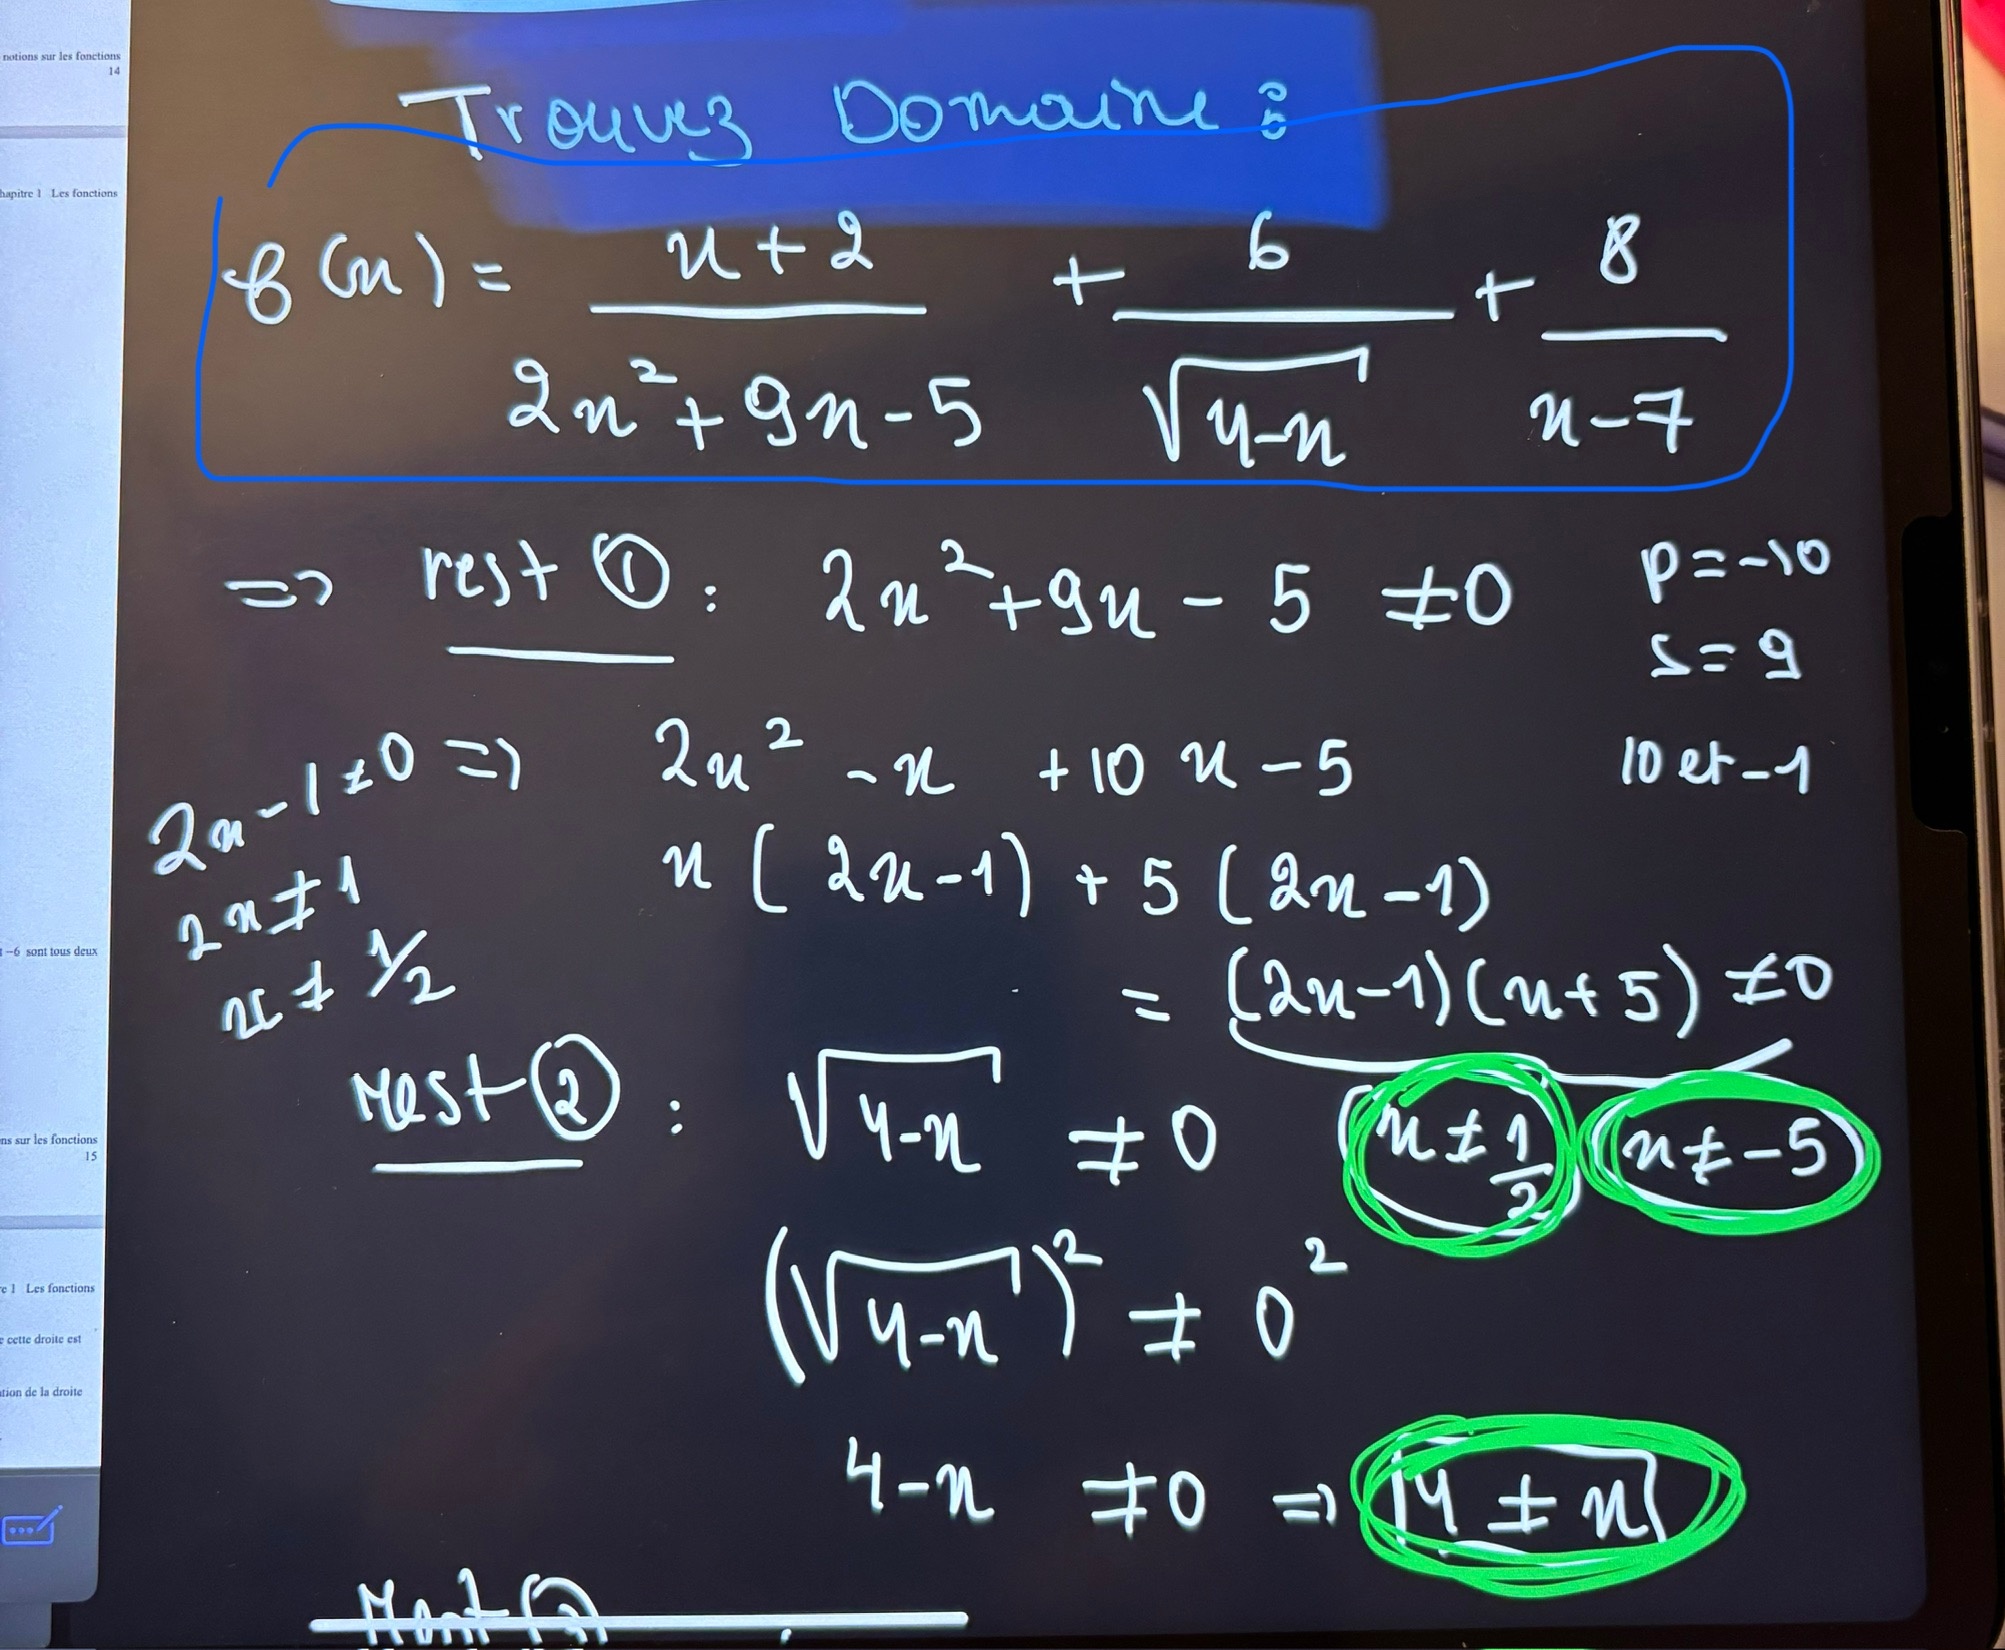 notions sur les fonctions
14
hapitre 1 Les fonctions
t -6 sont tous deux
ns sur les fonctions
15
re 1 Les fonctions
e cette droite est
tion de la droite
Trouvez Domaine :
f(x) = x+2 / 2x²+9x-5 + 6 / √4-x + 8 / x-7
=> rest ① : 2x²+9x-5 ≠0
p=-10
s=9
2x²-x+10x-5
10 et -1
2x-1≠0 =>
2x≠1
x≠1/2
x(2x-1)+5(2x-1)
= (2x-1)(x+5) ≠0
x≠1/2 x≠-5
rest ② : √4-x ≠0
(√4-x)² ≠ 0²
4-x ≠0 => 4≠x